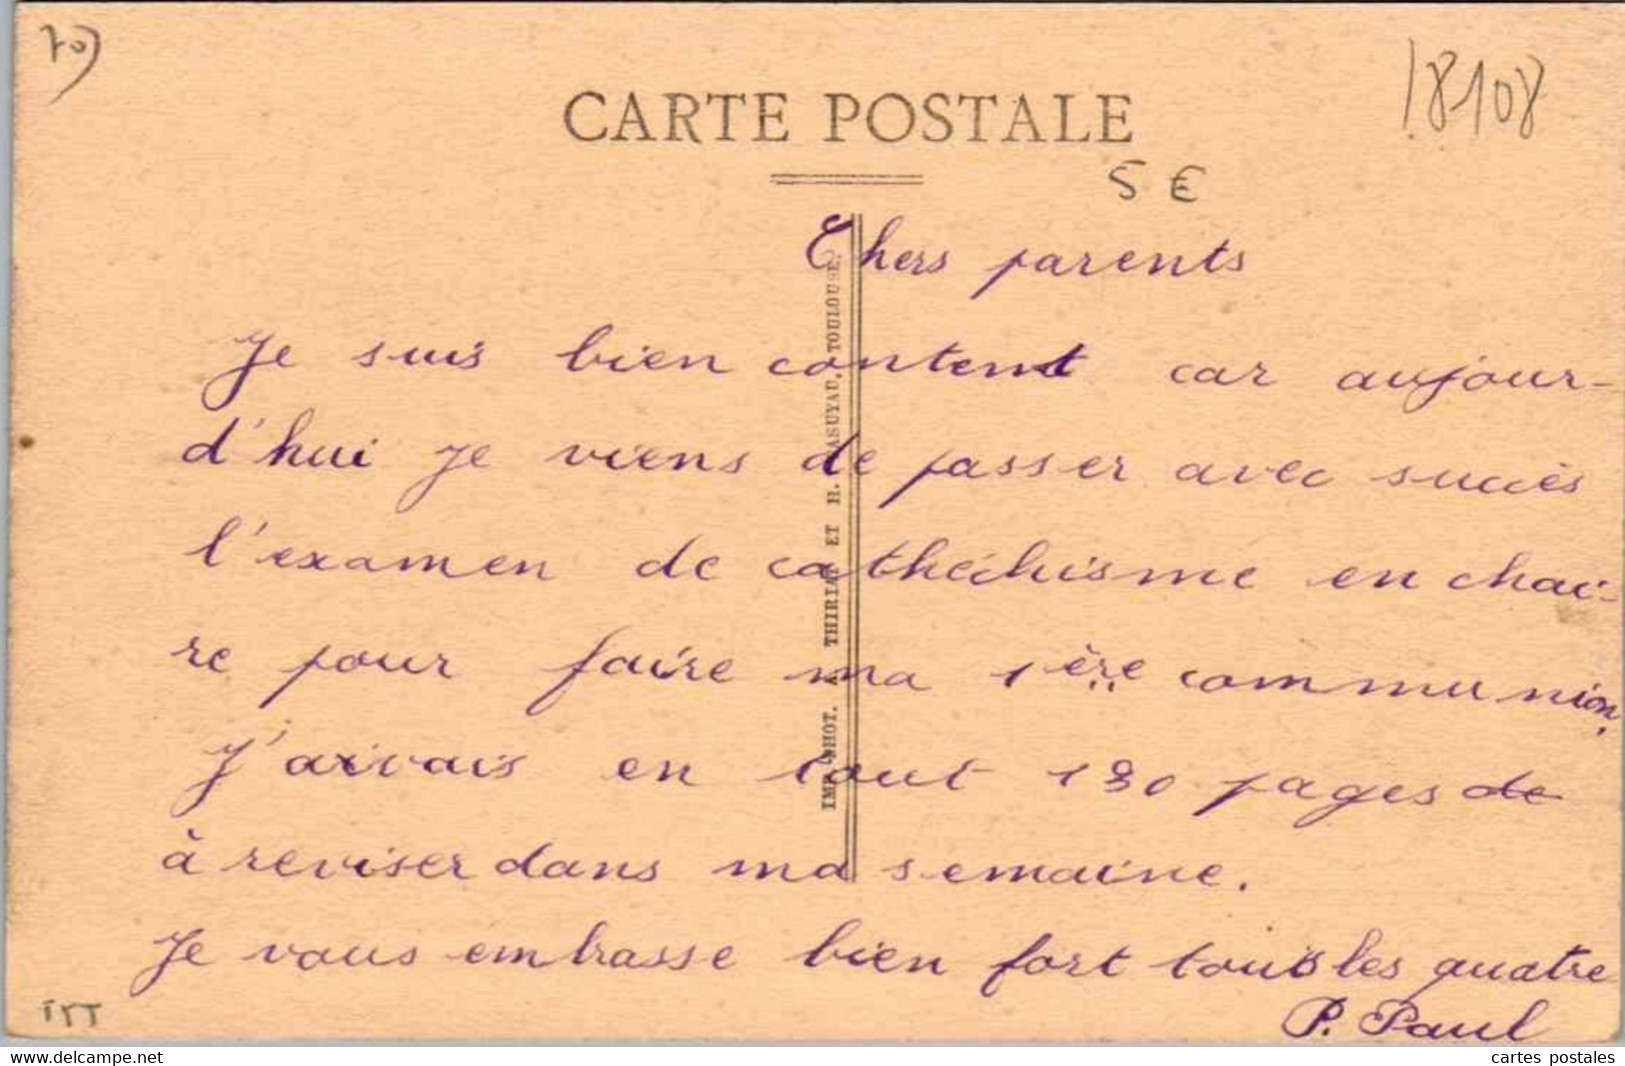 18108
CARTE POSTALE
5 €
Chers parents
Je suis bien content car aujour-
d'hui je viens de passer avec succès
l'examen de cathéchisme en chai-
re pour faire ma 1ère communion.
J'avais en tout 130 pages de
à reviser dans ma semaine.
Je vous embrasse bien fort tous les quatre
P. Paul
IMP. PHOT. A. THIRIAT ET H. BASUYAU, TOULOUSE.
delcampe.net
cartes postales